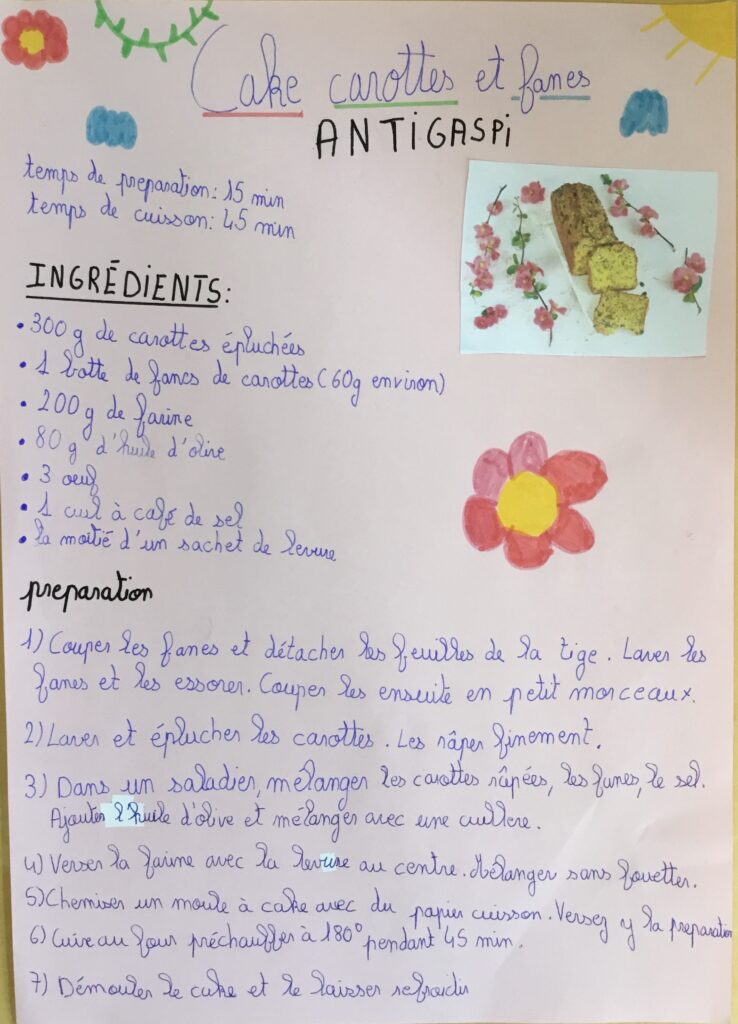 Cake carottes et fanes
ANTIGASPi
temps de preparation: 15 min
temps de cuisson: 45 min
INGRÉDIENTS:
• 300 g de carottes épluchées
• 1 botte de fanes de carottes (60g environ)
• 200 g de farine
• 80 g d'huile d'olive
• 3 oeuf
• 1 cuil à café de sel
• la moitié d'un sachet de levure
preparation
1) Couper les fanes et détacher les feuilles de la tige. Laver les
fanes et les essorer. Couper les ensuite en petit morceaux.
2) Laver et éplucher les carottes. Les râper finement.
3) Dans un saladier, mélanger les carottes râpées, les fanes, le sel.
Ajouter l'huile d'olive et mélanger avec une cuillere.
4) Verser la farine avec la levure au centre. Mélanger sans fouetter.
5) Chemiser un moule à cake avec du papier cuisson. Versez y la preparation
6) Cuire au four préchauffer à 180° pendant 45 min.
7) Démouler le cake et le laisser refroidir